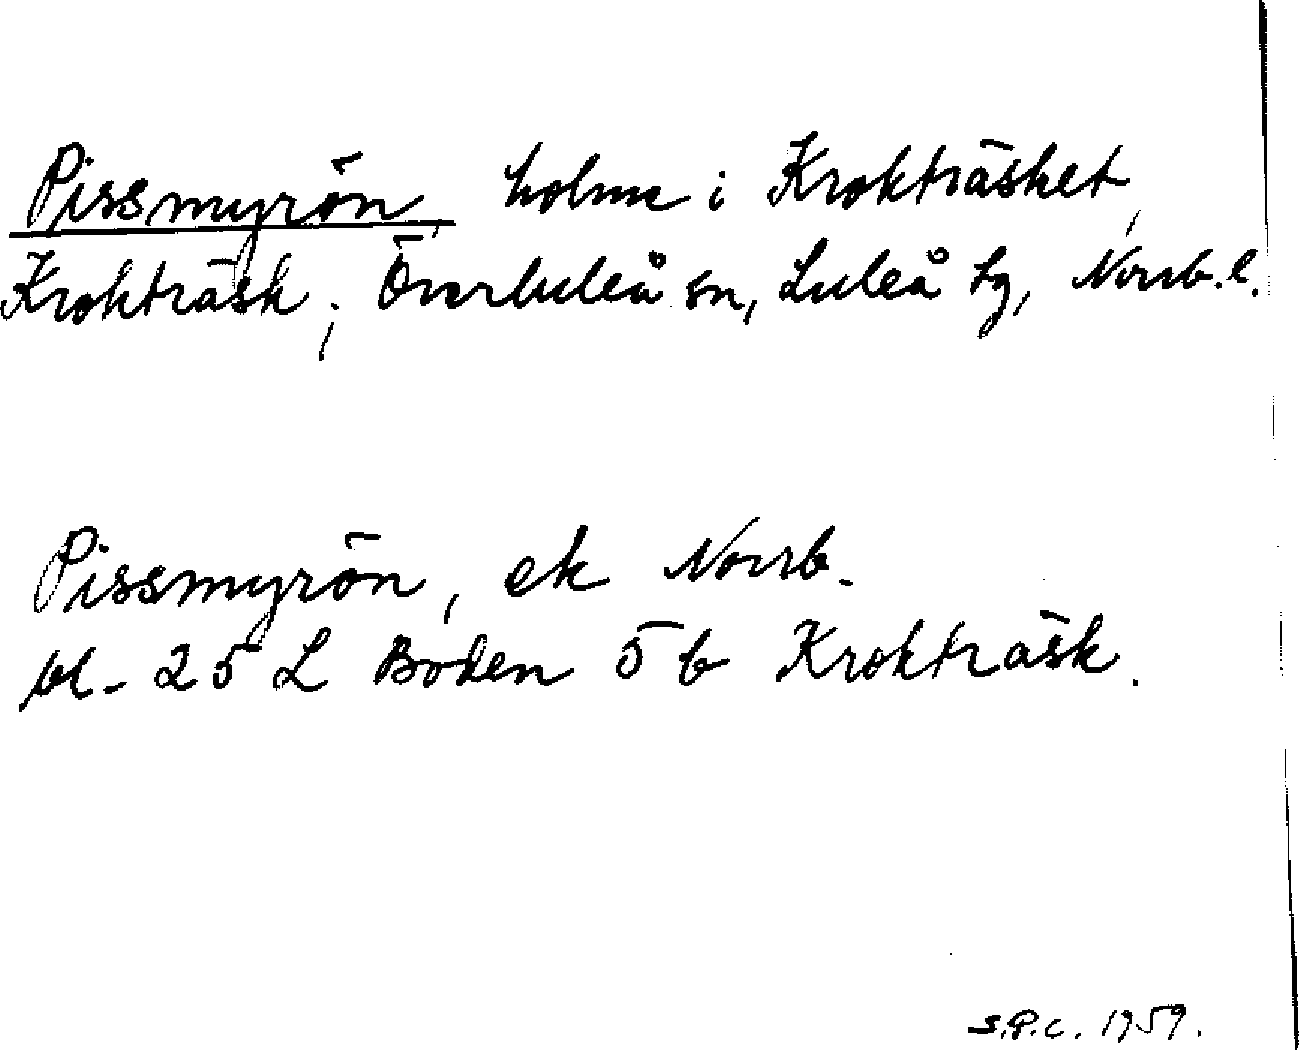 Pissmyrön, holme i Krokträsket,
Krokträsk; Överluleå sn, Luleå tg, Norrb.l.
Pissmyrön, ek Norrb.
bl. 25 L Boden 5 b Krokträsk.
S.P.C. 1959.